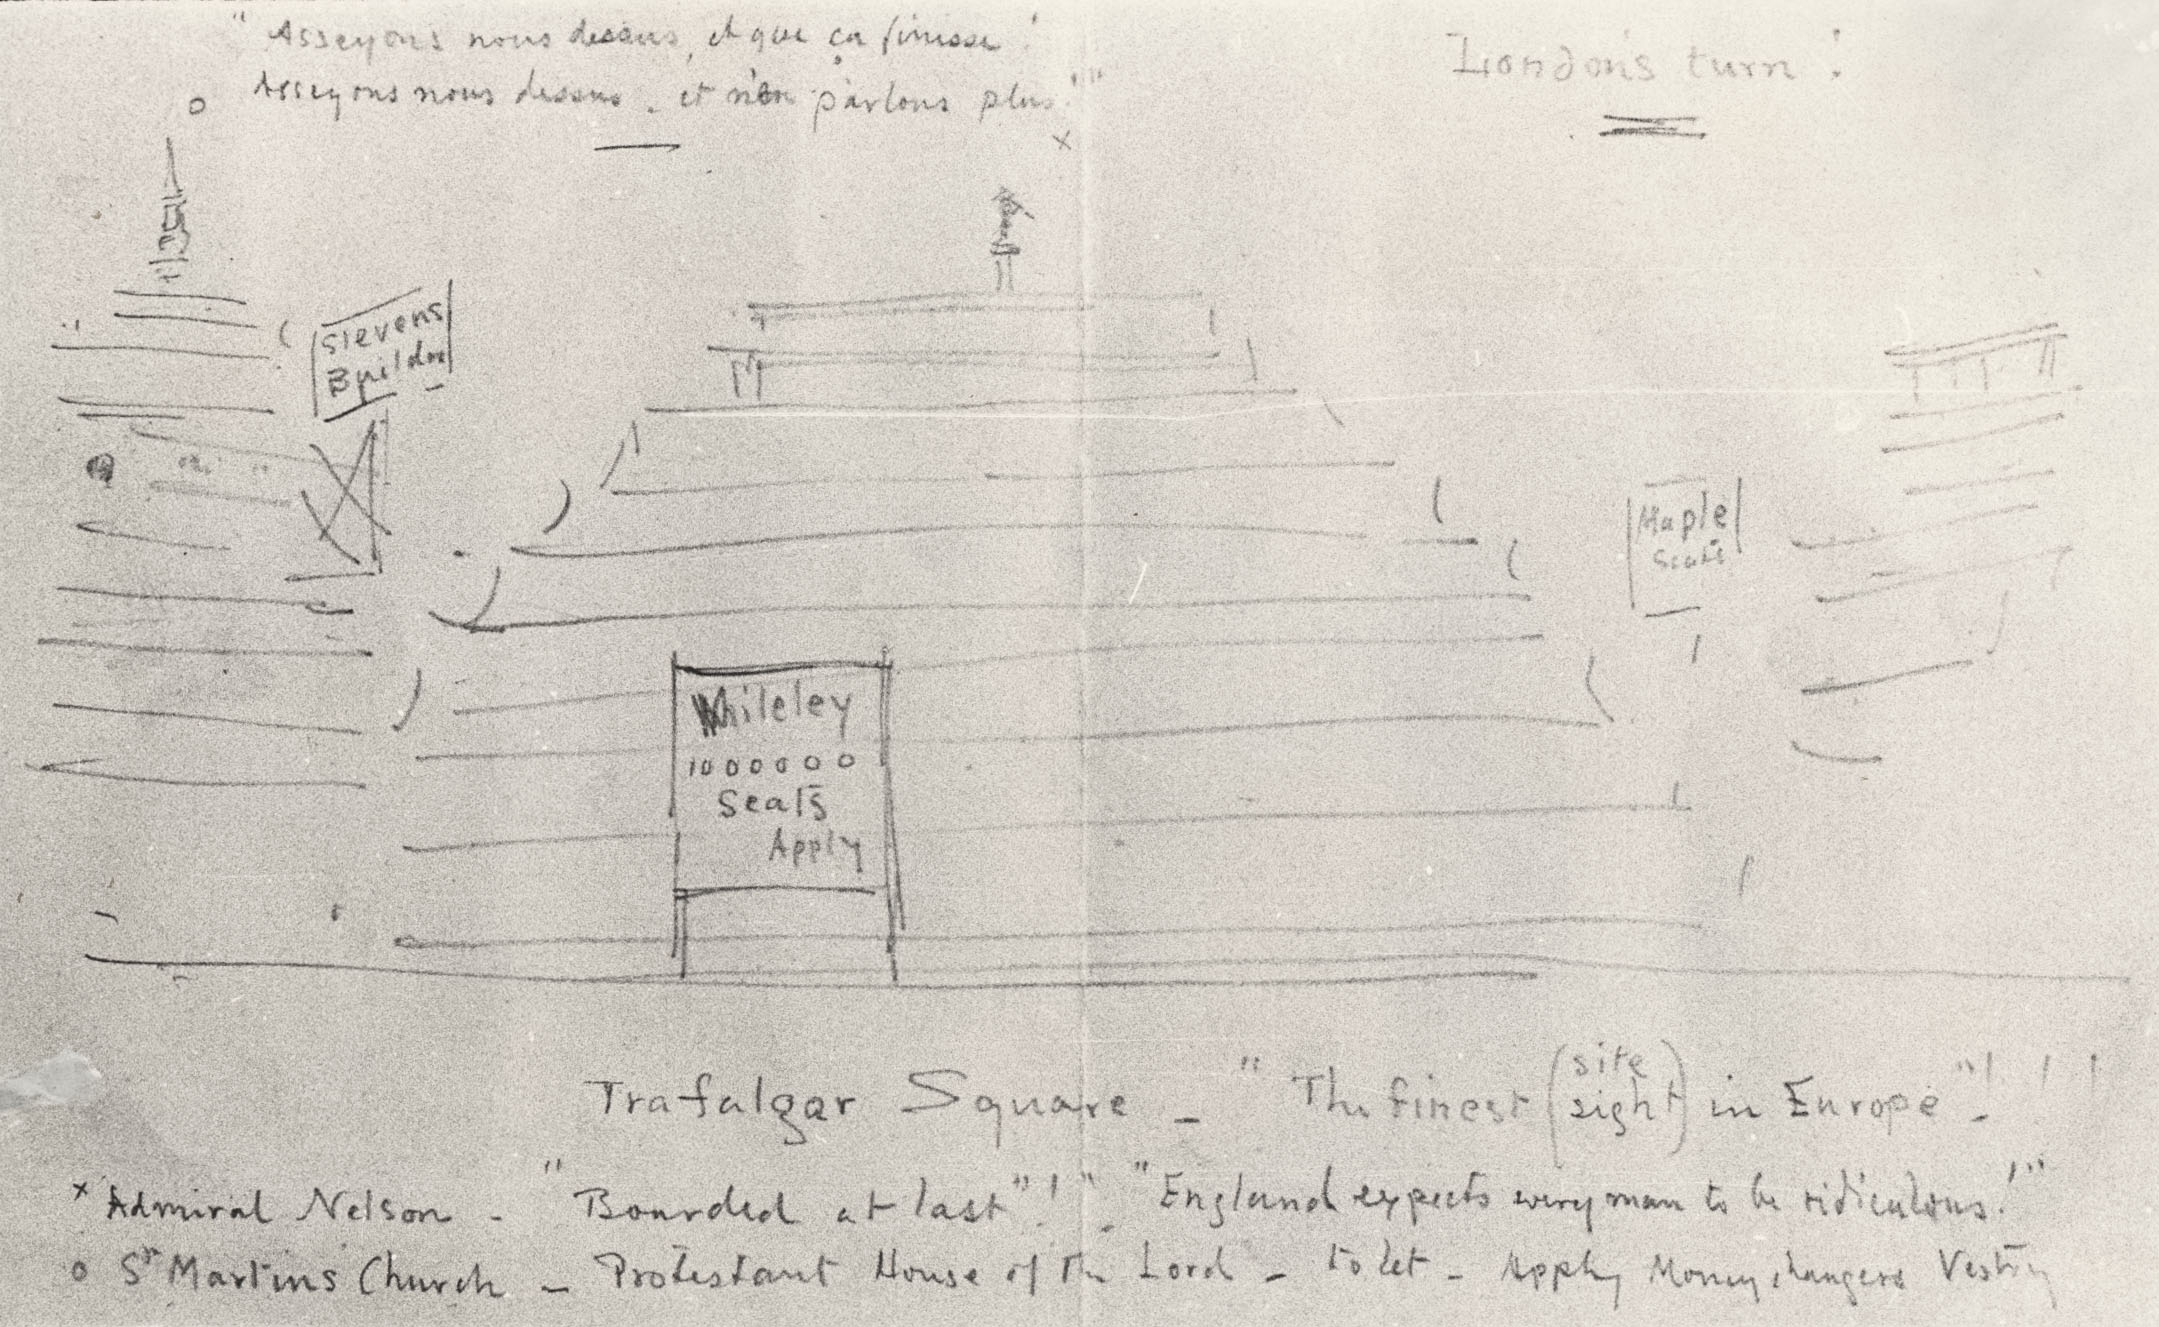 " Asseyons nous dessus, et que ça finisse !
Asseyons nous dessus - et n'en parlons plus ! "
London's turn !
o
x
Stevens
Maple
Seats
Whiteley
1000000
Seats
Apply
Trafalgar Square - " The finest (site
sight) in Europe " ! ! !
x Admiral Nelson - " Boarded at last " ! " - " England expects every man to be ridiculous ! "
o St Martins Church - Protestant House of the Lord - to let - Apply Money changers Vestry